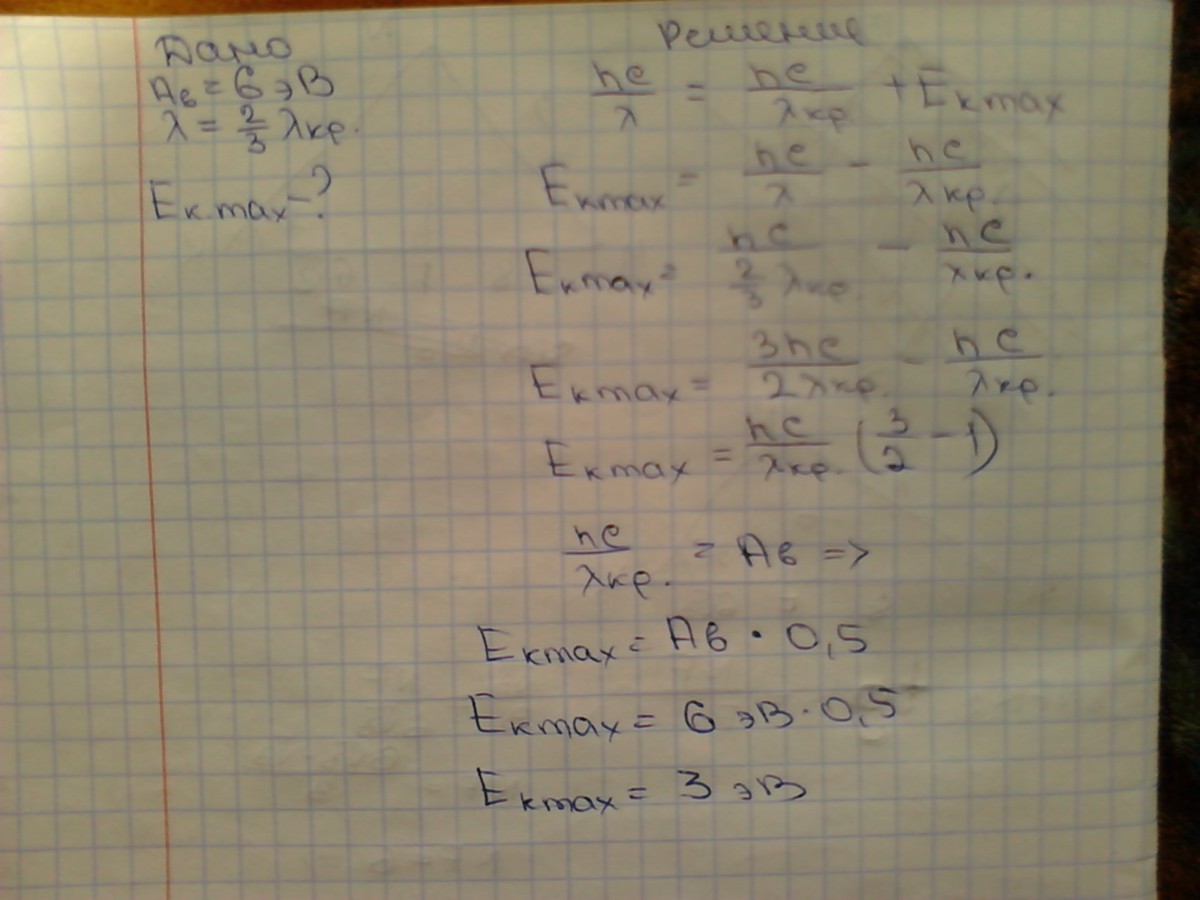 Дано
Aв = 6 эВ
λ = 2/3 λкр.
Eк max - ?
Решение
hc/λ = hc/λкр + Eк max
Eк max = hc/λ - hc/λкр.
Eк max = hc/(2/3 λкр.) - hc/λкр.
Eк max = 3hc/2λкр. - hc/λкр.
Eк max = hc/λкр. (3/2 - 1)
hc/λкр. = Aв =>
Eк max = Aв · 0,5
Eк max = 6 эВ · 0,5
Eк max = 3 эВ